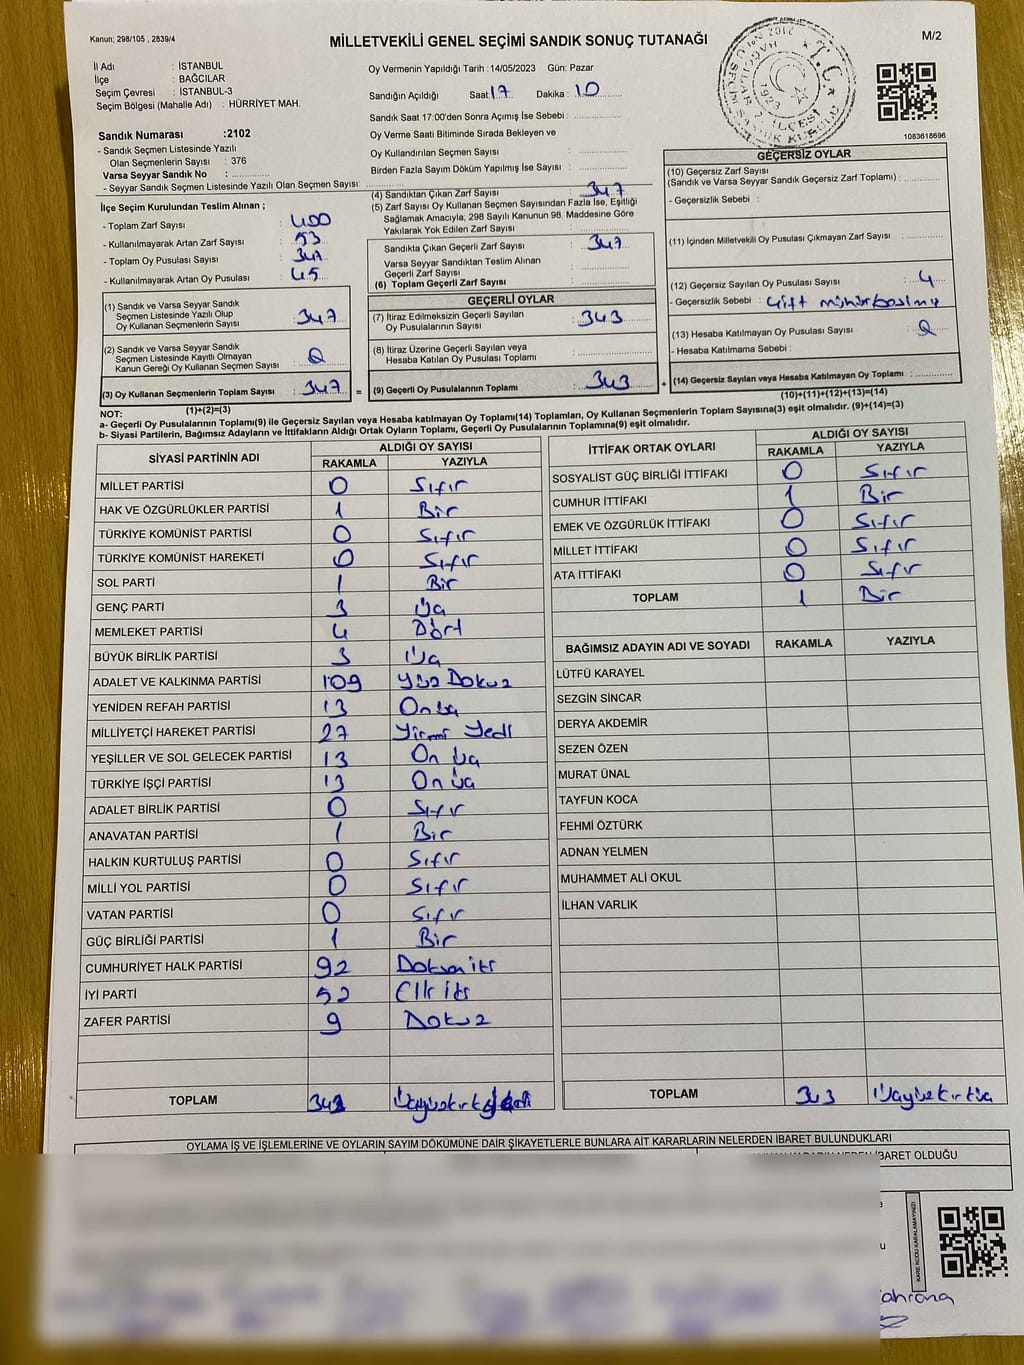 Kanun; 298/105 , 2839/4
MİLLETVEKİLİ GENEL SEÇİMİ SANDIK SONUÇ TUTANAĞI
M/2
İl Adı : İSTANBUL
İlçe : BAĞCILAR
Seçim Çevresi : İSTANBUL-3
Seçim Bölgesi (Mahalle Adı) : HÜRRİYET MAH.
Oy Vermenin Yapıldığı Tarih :14/05/2023 Gün: Pazar
Sandığın Açıldığı Saat: 17 Dakika : 10
Sandık Saat 17:00'den Sonra Açımış İse Sebebi :
Oy Verme Saati Bitiminde Sırada Bekleyen ve
Oy Kullandırılan Seçmen Sayısı
Birden Fazla Sayım Döküm Yapılmış İse Sayısı :
T.C.
1923
1083618696
Sandık Numarası :2102
- Sandık Seçmen Listesinde Yazılı
Olan Seçmenlerin Sayısı : 376
Varsa Seyyar Sandık No :
- Seyyar Sandık Seçmen Listesinde Yazılı Olan Seçmen Sayısı:
İlçe Seçim Kurulundan Teslim Alınan ;
- Toplam Zarf Sayısı : 400
- Kullanılmayarak Artan Zarf Sayısı : 53
- Toplam Oy Pusulası Sayısı : 347
- Kullanılmayarak Artan Oy Pusulası : 45
(1) Sandık ve Varsa Seyyar Sandık
Seçmen Listesinde Yazılı Olup
Oy Kullanan Seçmenlerin Sayısı : 347
(2) Sandık ve Varsa Seyyar Sandık
Seçmen Listesinde Kayıtlı Olmayan
Kanun Gereği Oy Kullanan Seçmen Sayısı :
(3) Oy Kullanan Seçmenlerin Toplam Sayısı : 347
(1)+(2)=(3)
(4) Sandıktan Çıkan Zarf Sayısı : 347
(5) Zarf Sayısı Oy Kullanan Seçmen Sayısından Fazla İse, Eşitliği
Sağlamak Amacıyla; 298 Sayılı Kanunun 98. Maddesine Göre
Yakılarak Yok Edilen Zarf Sayısı :
Sandıkta Çıkan Geçerli Zarf Sayısı : 347
Varsa Seyyar Sandıktan Teslim Alınan
Geçerli Zarf Sayısı :
(6) Toplam Geçerli Zarf Sayısı :
GEÇERLİ OYLAR
(7) İtiraz Edilmeksizin Geçerli Sayılan
Oy Pusulalarının Sayısı : 343
(8) İtiraz Üzerine Geçerli Sayılan veya
Hesaba Katılan Oy Pusulası Toplamı :
= (9) Geçerli Oy Pusulalarının Toplamı : 343 +
GEÇERSİZ OYLAR
(10) Geçersiz Zarf Sayısı
(Sandık ve Varsa Seyyar Sandık Geçersiz Zarf Toplamı) :
- Geçersizlik Sebebi :
(11) İçinden Milletvekili Oy Pusulası Çıkmayan Zarf Sayısı :
(12) Geçersiz Sayılan Oy Pusulası Sayısı : 4
- Geçersizlik Sebebi : Çift mühür basılmış
(13) Hesaba Katılmayan Oy Pusulası Sayısı :
- Hesaba Katılmama Sebebi :
(14) Geçersiz Sayılan veya Hesaba Katılmayan Oy Toplamı :
(10)+(11)+(12)+(13)=(14)
NOT:
a- Geçerli Oy Pusulalarının Toplamı(9) ile Geçersiz Sayılan veya Hesaba katılmayan Oy Toplamı(14) Toplamları, Oy Kullanan Seçmenlerin Toplam Sayısına(3) eşit olmalıdır. (9)+(14)=(3)
b- Siyasi Partilerin, Bağımsız Adayların ve İttifakların Aldığı Ortak Oyların Toplamı, Geçerli Oy Pusulalarının Toplamına(9) eşit olmalıdır.
SİYASİ PARTİNİN ADI ALDIĞI OY SAYISI
RAKAMLA YAZIYLA
MİLLET PARTİSİ 0 Sıfır
HAK VE ÖZGÜRLÜKLER PARTİSİ 1 Bir
TÜRKİYE KOMÜNİST PARTİSİ 0 Sıfır
TÜRKİYE KOMÜNİST HAREKETİ 0 Sıfır
SOL PARTİ 1 Bir
GENÇ PARTİ 3 Üç
MEMLEKET PARTİSİ 4 Dört
BÜYÜK BİRLİK PARTİSİ 3 Üç
ADALET VE KALKINMA PARTİSİ 109 Yüz Dokuz
YENİDEN REFAH PARTİSİ 13 Onüç
MİLLİYETÇİ HAREKET PARTİSİ 27 Yirmi Yedi
YEŞİLLER VE SOL GELECEK PARTİSİ 13 On üç
TÜRKİYE İŞÇİ PARTİSİ 13 On üç
ADALET BİRLİK PARTİSİ 0 Sıfır
ANAVATAN PARTİSİ 1 Bir
HALKIN KURTULUŞ PARTİSİ 0 Sıfır
MİLLİ YOL PARTİSİ 0 Sıfır
VATAN PARTİSİ 0 Sıfır
GÜÇ BİRLİĞİ PARTİSİ 1 Bir
CUMHURİYET HALK PARTİSİ 92 Doksan iki
İYİ PARTİ 52 Elli iki
ZAFER PARTİSİ 9 Dokuz
TOPLAM 343
İTTİFAK ORTAK OYLARI ALDIĞI OY SAYISI
RAKAMLA YAZIYLA
SOSYALİST GÜÇ BİRLİĞİ İTTİFAKI 0 Sıfır
CUMHUR İTTİFAKI 1 Bir
EMEK VE ÖZGÜRLÜK İTTİFAKI 0 Sıfır
MİLLET İTTİFAKI 0 Sıfır
ATA İTTİFAKI 0 Sıfır
TOPLAM 1 Bir
BAĞIMSIZ ADAYIN ADI VE SOYADI RAKAMLA YAZIYLA
LÜTFÜ KARAYEL
SEZGİN SİNCAR
DERYA AKDEMİR
SEZEN ÖZEN
MURAT ÜNAL
TAYFUN KOCA
FEHMİ ÖZTÜRK
ADNAN YELMEN
MUHAMMET ALİ OKUL
İLHAN VARLIK
TOPLAM 343 Üçyüzkırküç
OYLAMA İŞ VE İŞLEMLERİNE VE OYLARIN SAYIM DÖKÜMÜNE DAİR ŞİKAYETLERLE BUNLARA AİT KARARLARIN NELERDEN İBARET BULUNDUKLARI
İBARET OLDUĞU
KARE KODU KARALAMAYINIZ!